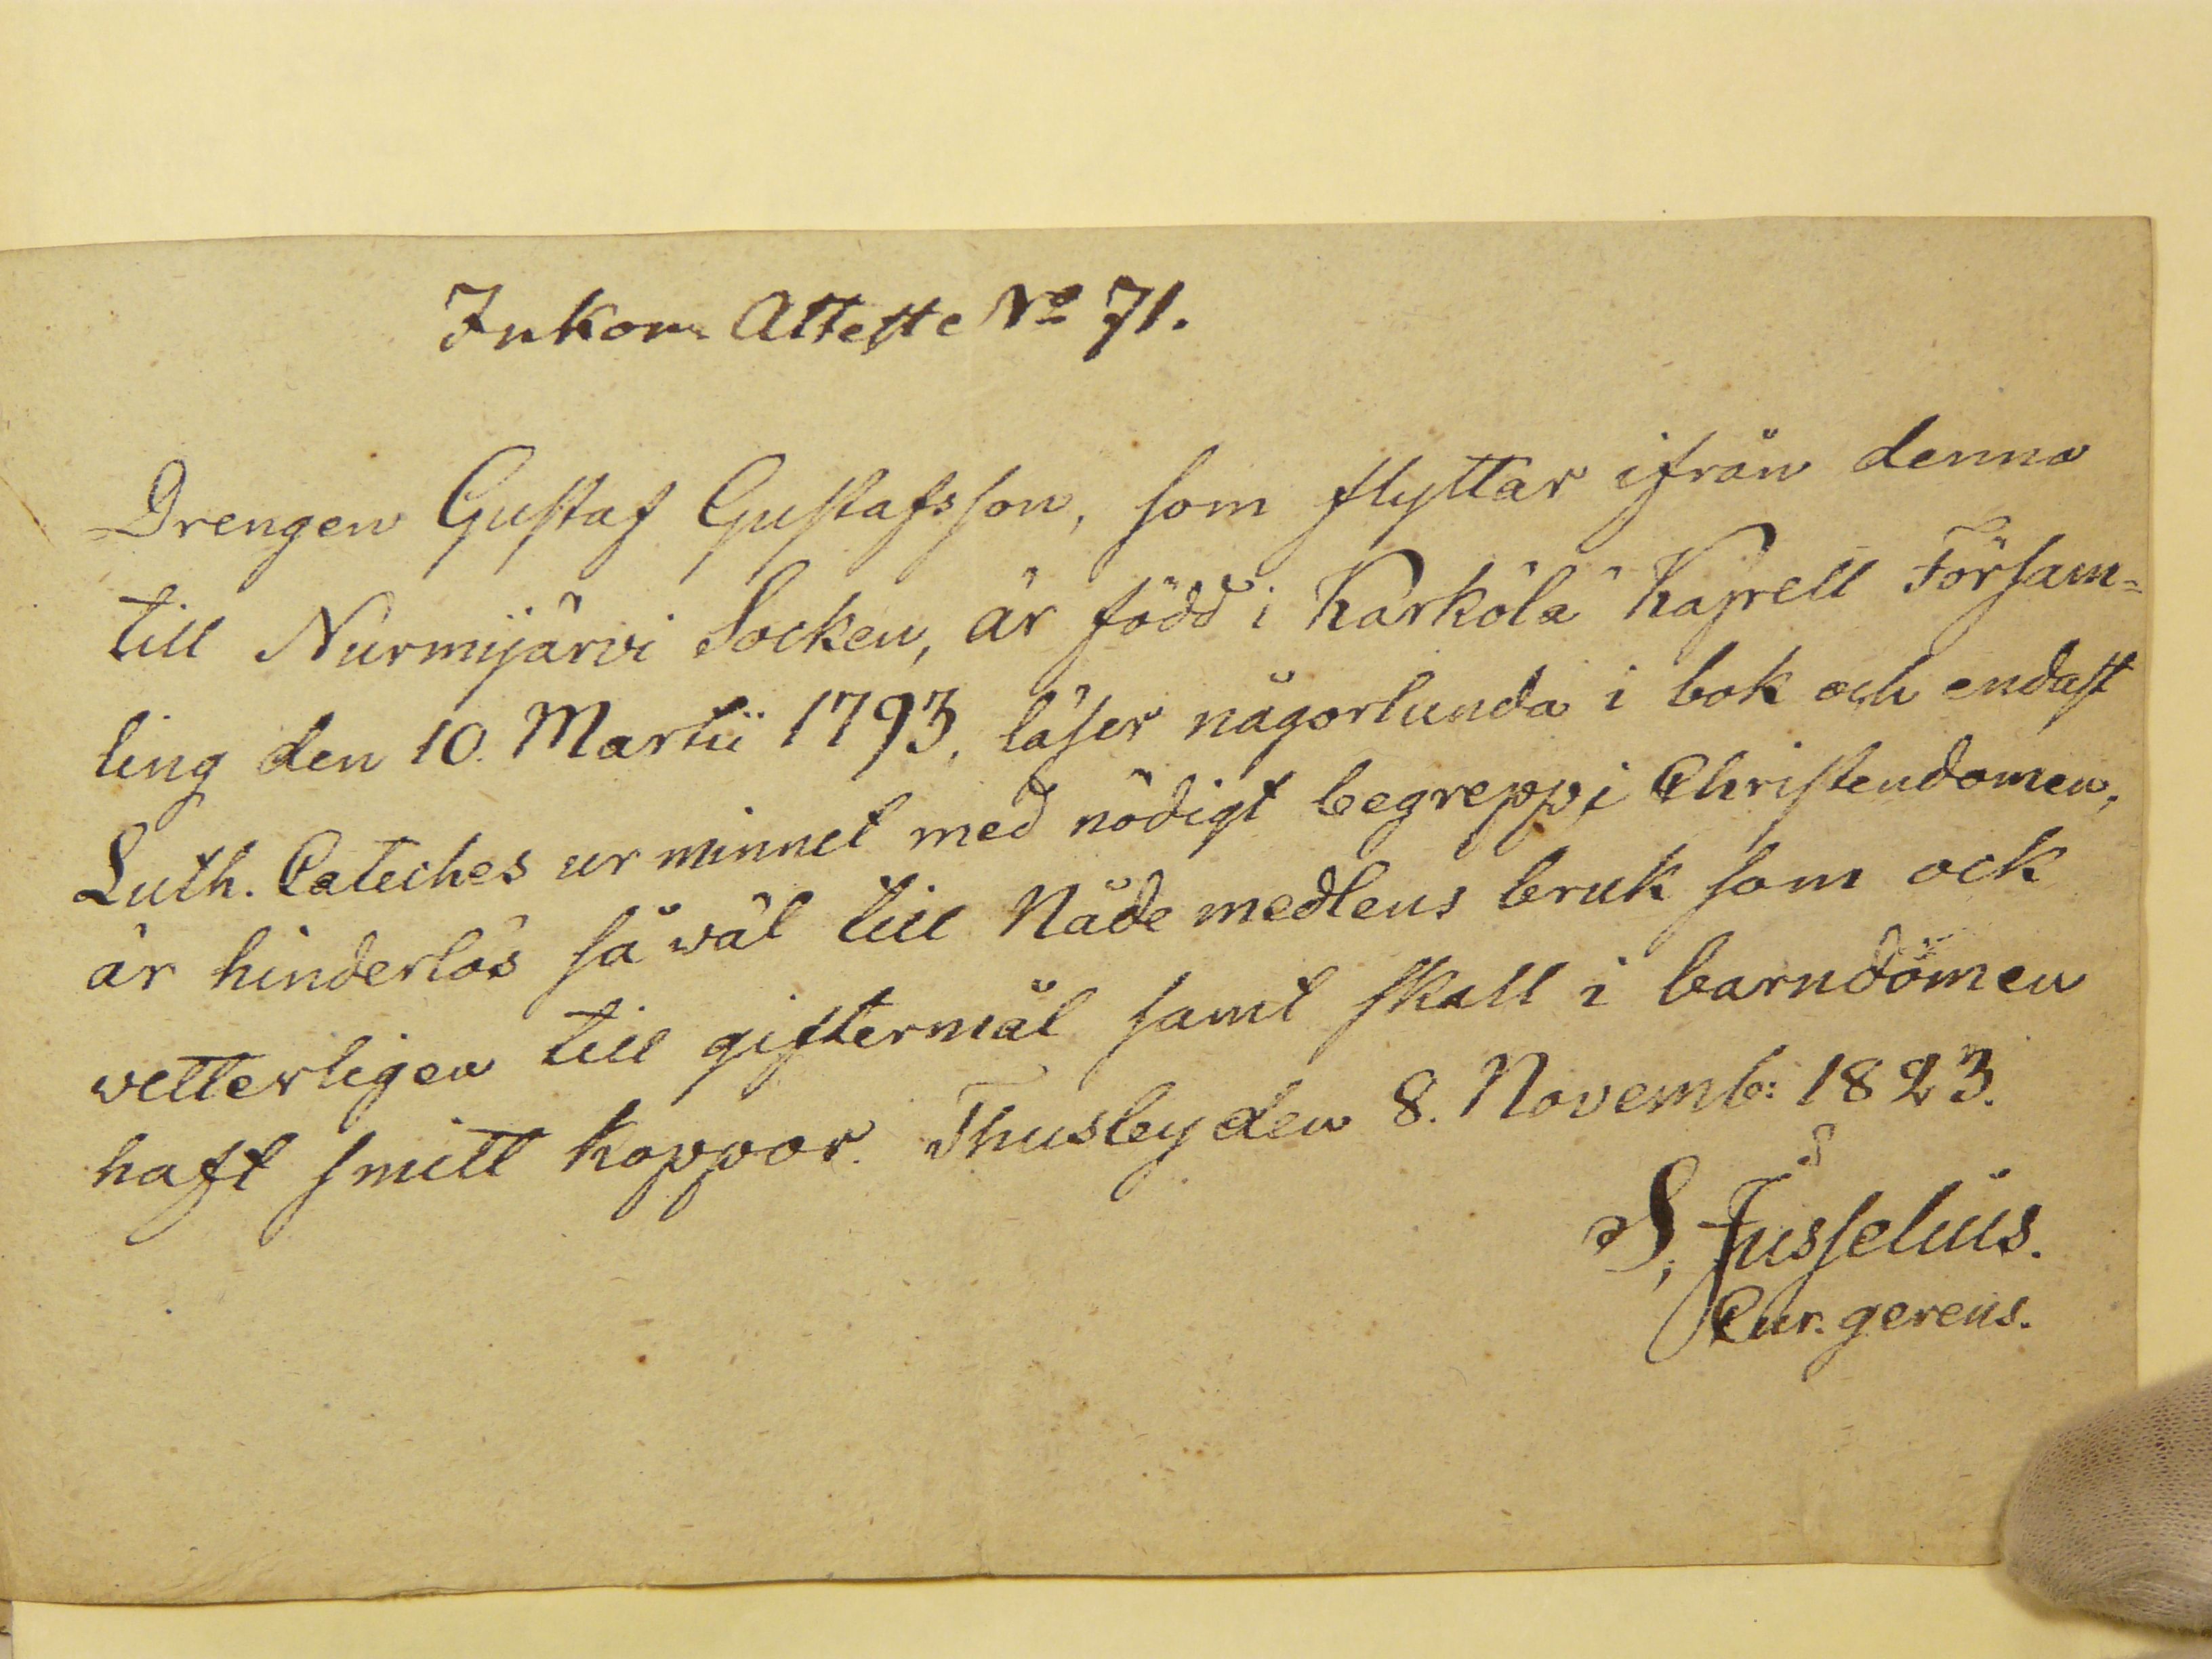 Inkom Atteste No 71.
Drengen Gustaf Gustafsson, som flyttar ifrån denna
till Nurmijärvi Socken, är född i Kärkölä Kapell Försam=
ling den 10. Martii 1793, läser någorlunda i bok och endast
Luth. Cateches ur minnet med nödigt begrepp i Christendomen,
är hinderlös så väl till Nåde medlens bruk som ock
vetterligen till giftermål samt skall i barndomen
haft smitt koppor. Thusby den 8. Novemb: 1823.
S. Fusselius.
Cur. gerens.